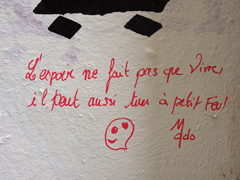 L'espoir ne fait pas que vivre,
il peut aussi tuer à petit Feu!
Mdo